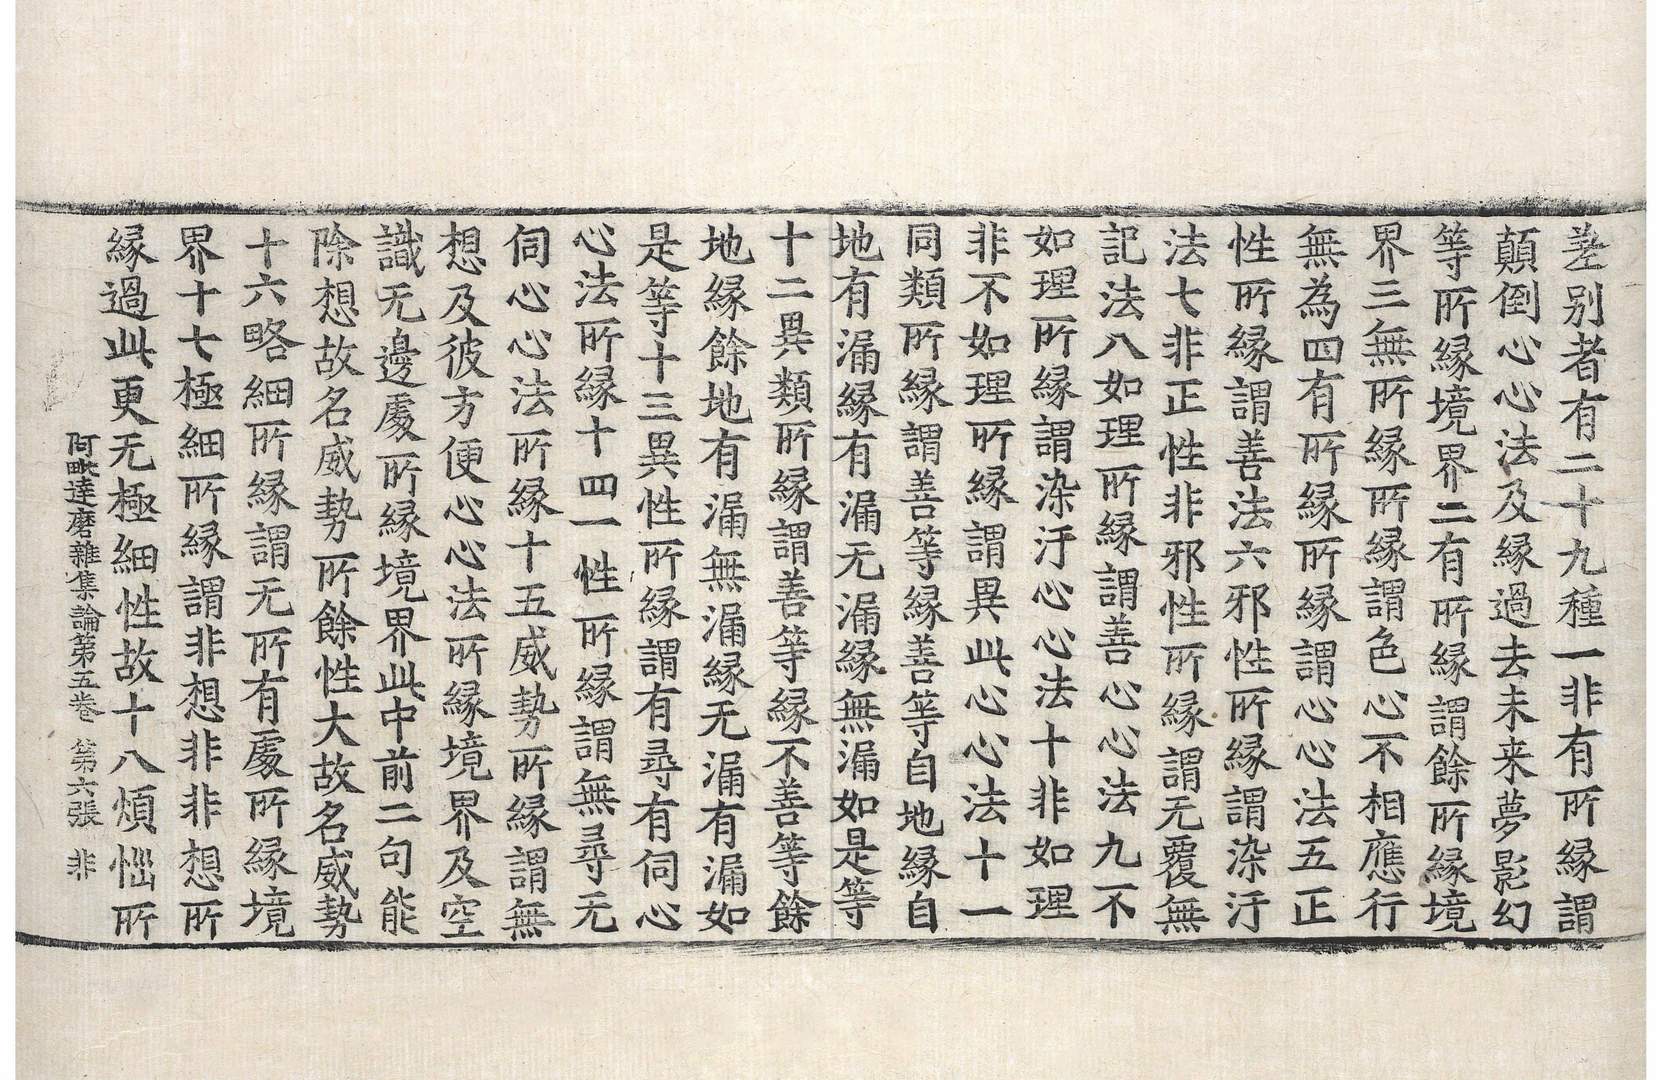 差別者有二十九種一非有所縁謂
顛倒心心法及縁過去未来夢影幻
等所縁境界二有所縁謂餘所縁境
界三無所縁所縁謂色心不相應行
無為四有所縁所縁謂心心法五正
性所縁謂善法六邪性所縁謂染汙
法七非正性非邪性所縁謂无覆無
記法八如理所縁謂善心心法九不
如理所縁謂染汙心心法十非如理
非不如理所縁謂異此心心法十一
同類所縁謂善等縁善等自地縁自
地有漏縁有漏无漏縁無漏如是等
十二異類所縁謂善等縁不善等餘
地縁餘地有漏無漏縁无漏有漏如
是等十三異性所縁謂有尋有伺心
心法所縁十四一性所縁謂無尋无
伺心心法所縁十五威勢所縁謂無
想及彼方便心心法所縁境界及空
識无邊處所縁境界此中前二句能
除想故名威勢所餘性大故名威勢
十六略細所縁謂无所有處所縁境
界十七極細所縁謂非想非非想所
縁過此更无極細性故十八煩惱所
阿毗達磨雜集論第五卷 第六張 非